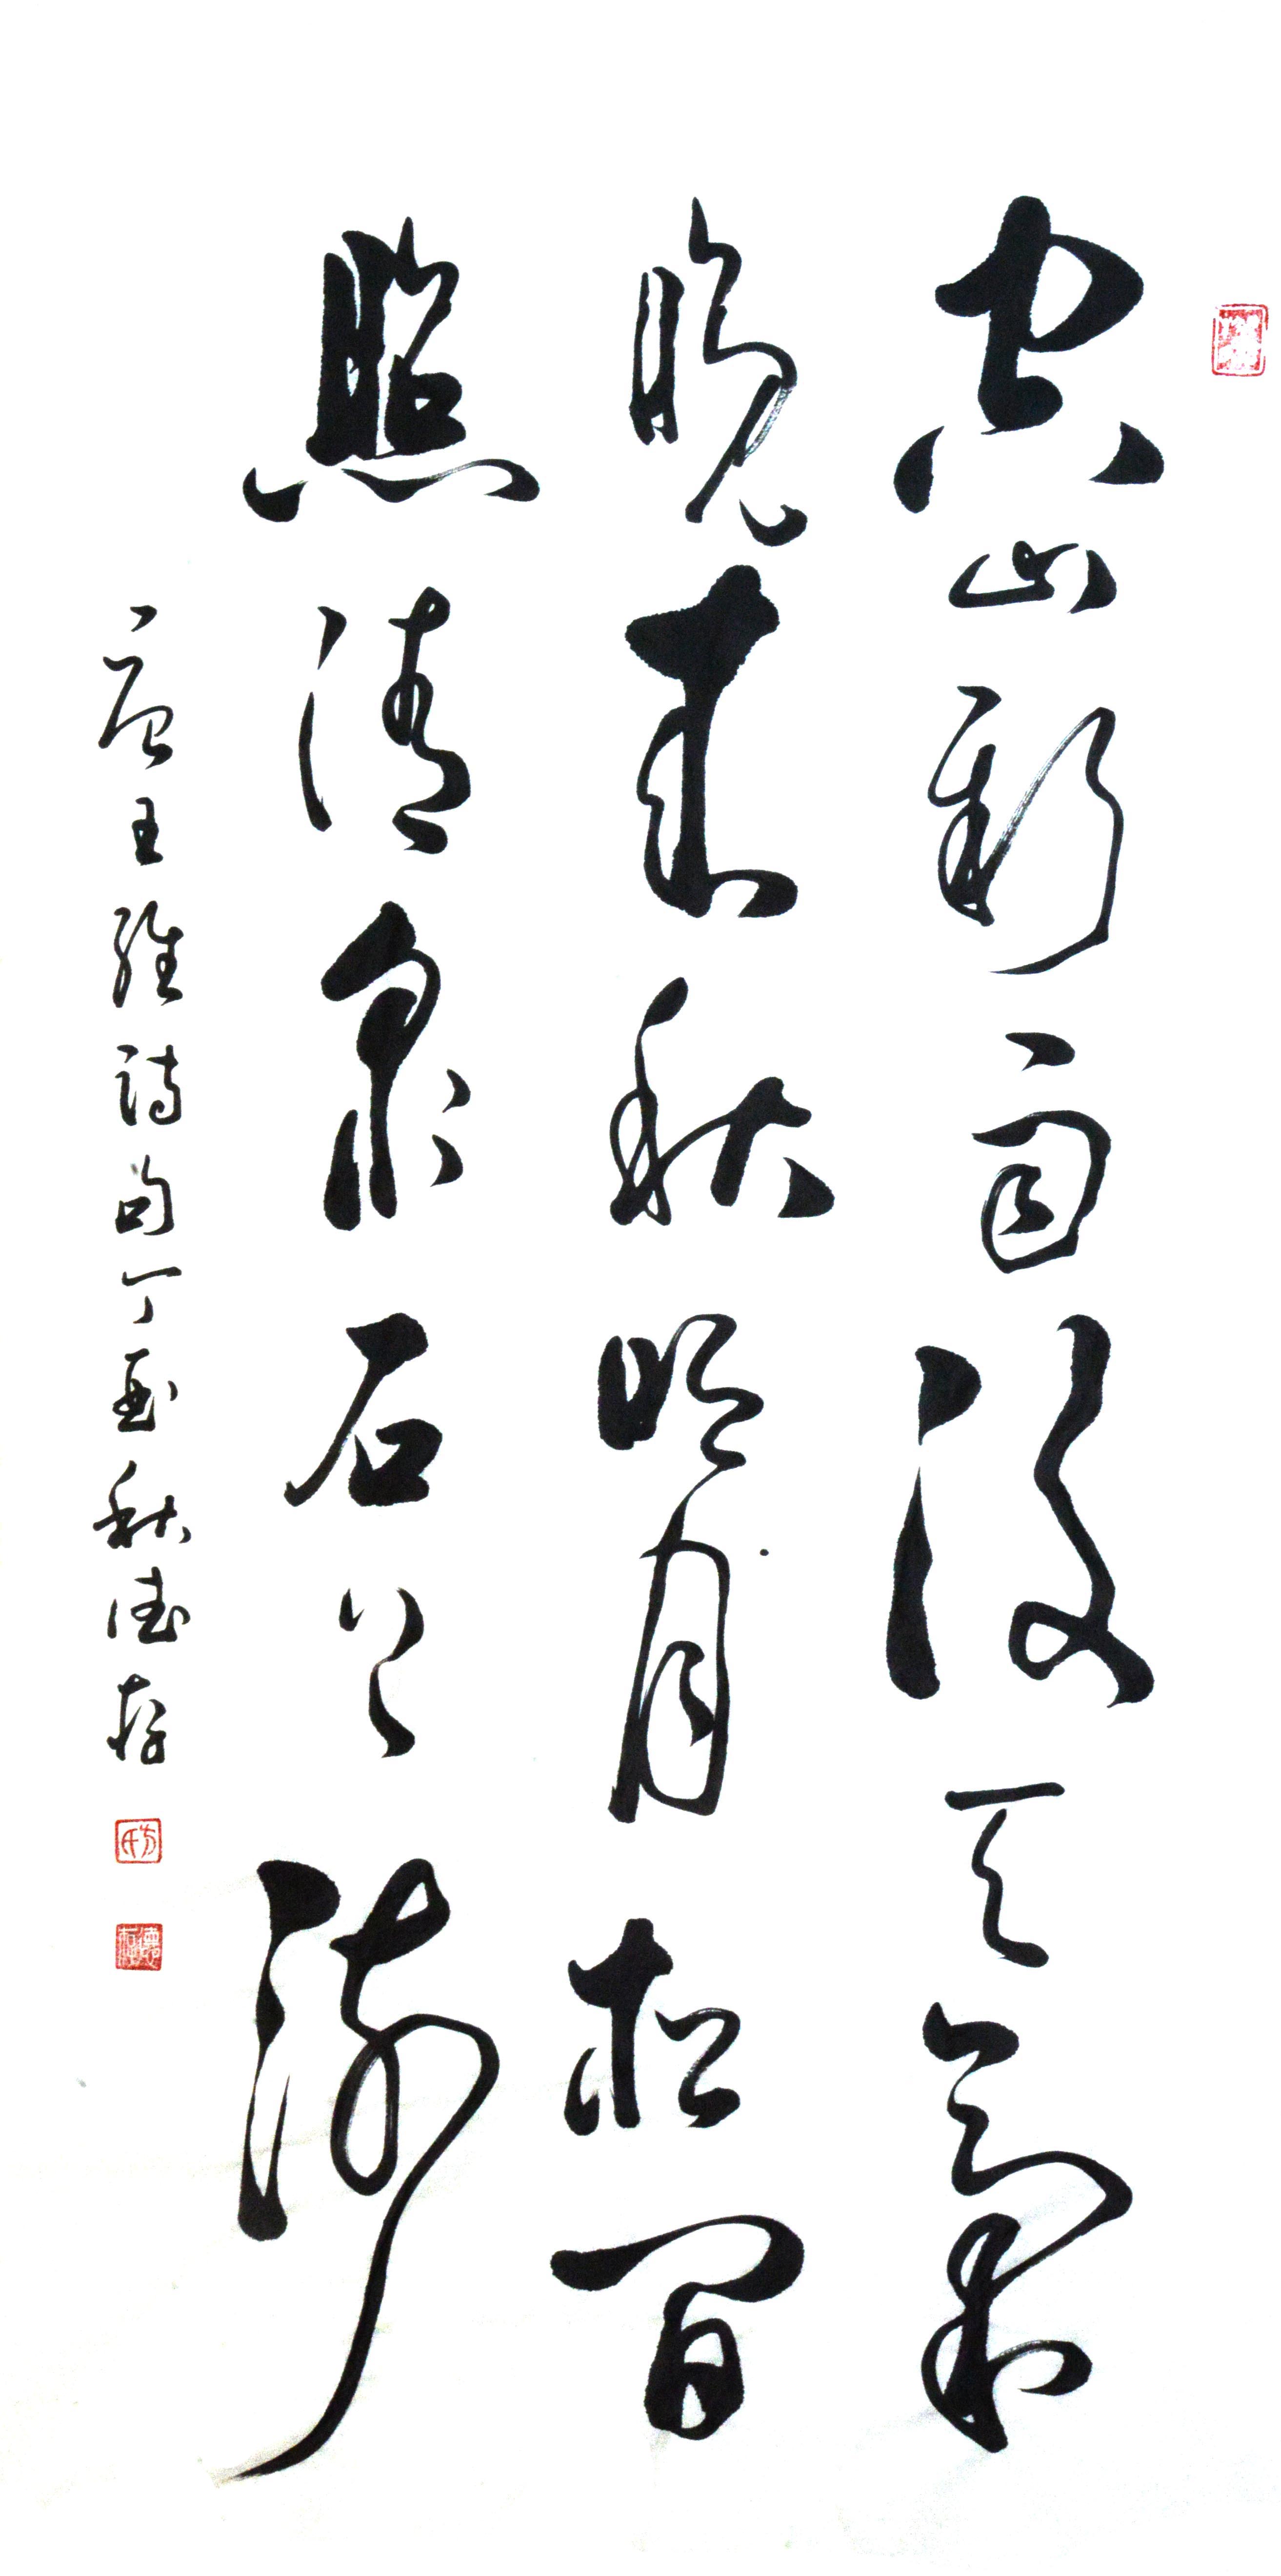 空山新雨後天氣
晚來秋明月松間
照清泉石上流
唐王維詩句丁酉秋德存
方氏